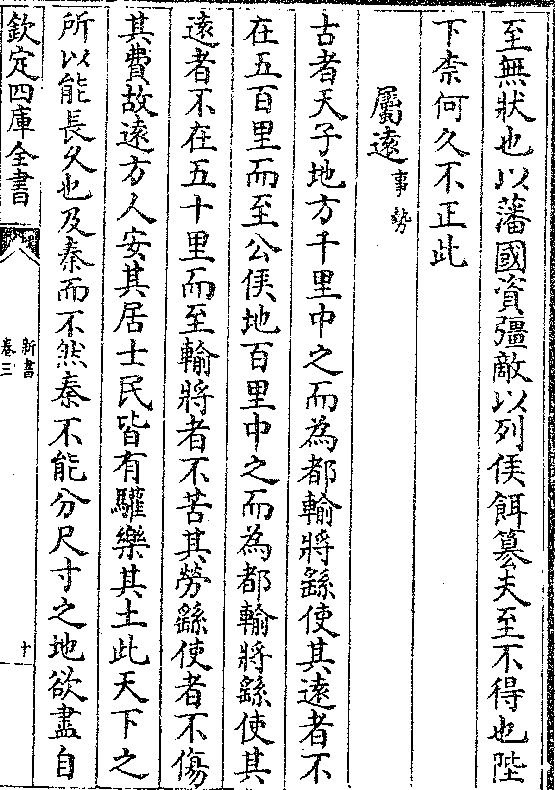 至無狀也以藩國資彊敵以列侯餌篡夫至不得也陛
下柰何久不正此
屬遠事勢
古者天子地方千里中之而為都輸將繇使其遠者不
在五百里而至公侯地百里中之而為都輸將繇使其
遠者不在五十里而至輸將者不苦其勞繇使者不傷
其費故遠方人安其居士民皆有驩樂其土此天下之
所以能長久也及秦而不然秦不能分尺寸之地欲盡自
欽定四庫全書
新書
卷三
十